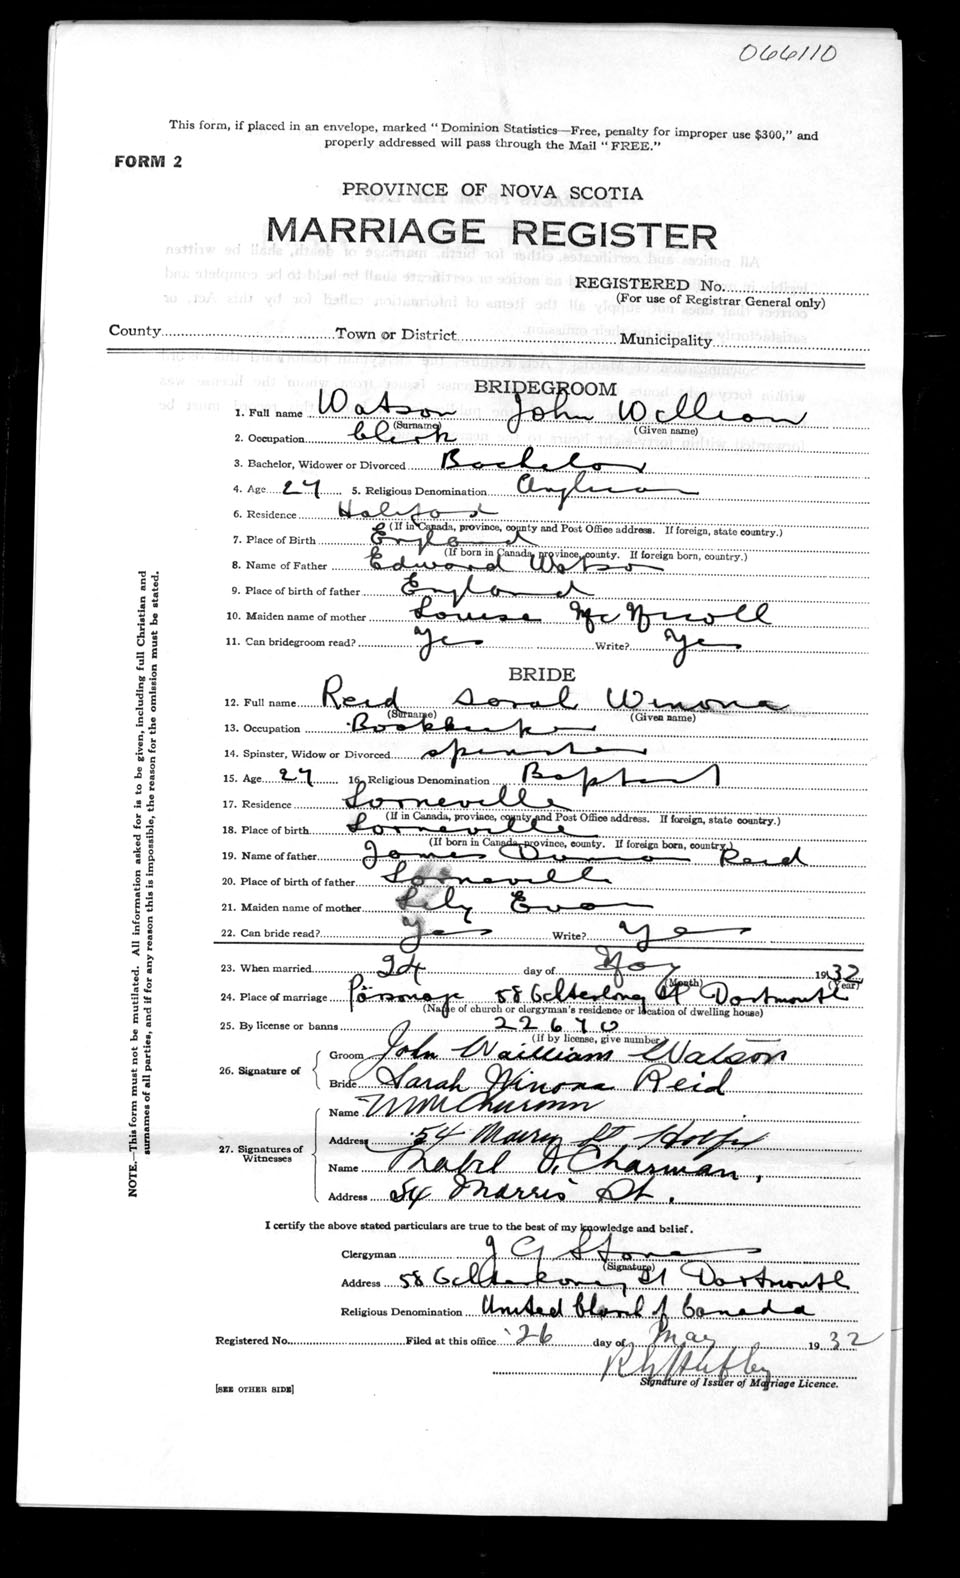 066110
This form, if placed in an envelope, marked “ Dominion Statistics—Free, penalty for improper use $300,” and
properly addressed will pass through the Mail “ FREE.”
FORM 2
PROVINCE OF NOVA SCOTIA
MARRIAGE REGISTER
REGISTERED No.
(For use of Registrar General only)
County Town or District Municipality
BRIDEGROOM
1. Full name Watson John William
(Surname) (Given name)
2. Occupation Clerk
3. Bachelor, Widower or Divorced Bachelor
4. Age 27 5. Religious Denomination Anglican
6. Residence Halifax
(If in Canada, province, county and Post Office address. If foreign, state country.)
7. Place of Birth England
(If born in Canada, province, county. If foreign born, country.)
8. Name of Father Edward Watson
9. Place of birth of father England
10. Maiden name of mother Louise McNicoll
11. Can bridegroom read? Yes Write? Yes
BRIDE
12. Full name Reid Sarah Winona
(Surname) (Given name)
13. Occupation Bookkeeper
14. Spinster, Widow or Divorced Spinster
15. Age 27 16. Religious Denomination Baptist
17. Residence Lorneville
(If in Canada, province, county and Post Office address. If foreign, state country.)
18. Place of birth Lorneville
(If born in Canada, province, county. If foreign born, country.)
19. Name of father James Duncan Reid
20. Place of birth of father Lorneville
21. Maiden name of mother Lily
22. Can bride read? Yes Write? Yes
23. When married 24 day of May 1932
(Month) (Year)
24. Place of marriage Parsonage 58 St Dartmouth
(Name of church or clergyman's residence or location of dwelling house)
25. By license or banns 22670
(If by license, give number)
26. Signature of
Groom John William Watson
Bride Sarah Winona Reid
27. Signatures of Witnesses
Name Charman
Address 54 Morris St, Halifax
Name Mabel O. Charman,
Address 54 Morris St.
I certify the above stated particulars are true to the best of my knowledge and belief.
Clergyman J G Stones
(Signature)
Address 58 St Dartmouth
Religious Denomination United Church of Canada
Registered No. Filed at this office 26 day of May 1932
Signature of Issuer of Marriage Licence.
[SEE OTHER SIDE]
NOTE.—This form must not be mutilated. All information asked for is to be given, including full Christian and
surnames of all parties, and if for any reason this is impossible, the reason for the omission must be stated.